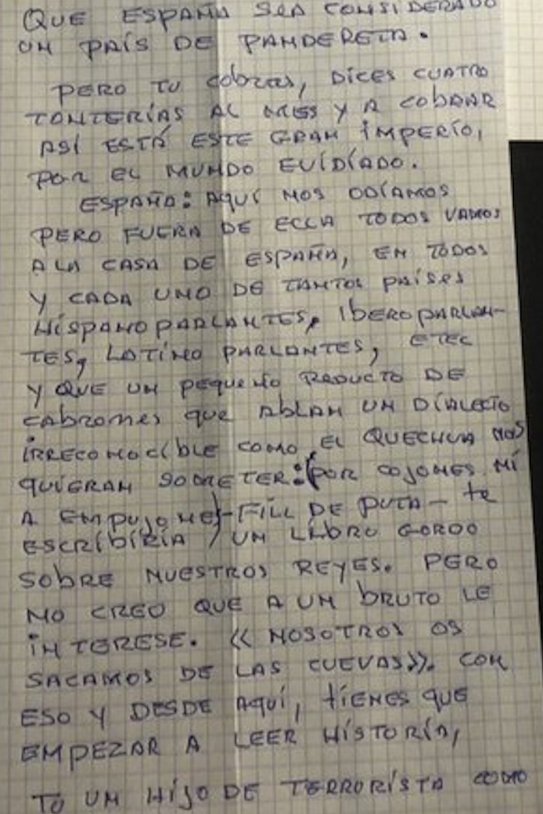 QUE ESPAÑA SEA CONSIDERADO
UN PAÍS DE PANDERETA.
PERO TU cobras, DICES CUATRO
TONTERÍAS AL MES Y A COBRAR
ASÍ ESTÁ ESTE GRAN IMPERIO,
POR EL MUNDO EVIDIADO.
ESPAÑA: AQUÍ NOS ODIAMOS
PERO FUERA DE ELLA TODOS VAMOS
A LA CASA DE ESPAÑA, EN TODOS
Y CADA UNO DE TANTOS PAÍSES
HISPANOPARLANTES, IBEROPARLAN-
TES, LATINO PARLANTES, ETEC
Y QUE UN PEQUEÑO REDUCTO DE
CABRONES QUE ABLAN UN DIALECTO
IRRECONOCIBLE COMO EL QUECHUA NOS
QUIERAN SOMETER: POR COJONES NI
A EMPUJONES - FILL DE PUTA - te
ESCRIBIRÍA UN LIBRO GORDO
SOBRE NUESTROS REYES. PERO
NO CREO QUE A UN BRUTO LE
INTERESE. << NOSOTROS OS
SACAMOS DE LAS CUEVAS>>. CON
ESO Y DESDE AQUÍ, TIENES QUE
EMPEZAR A LEER HISTORIA,
TU UN HIJO DE TERRORISTA COMO